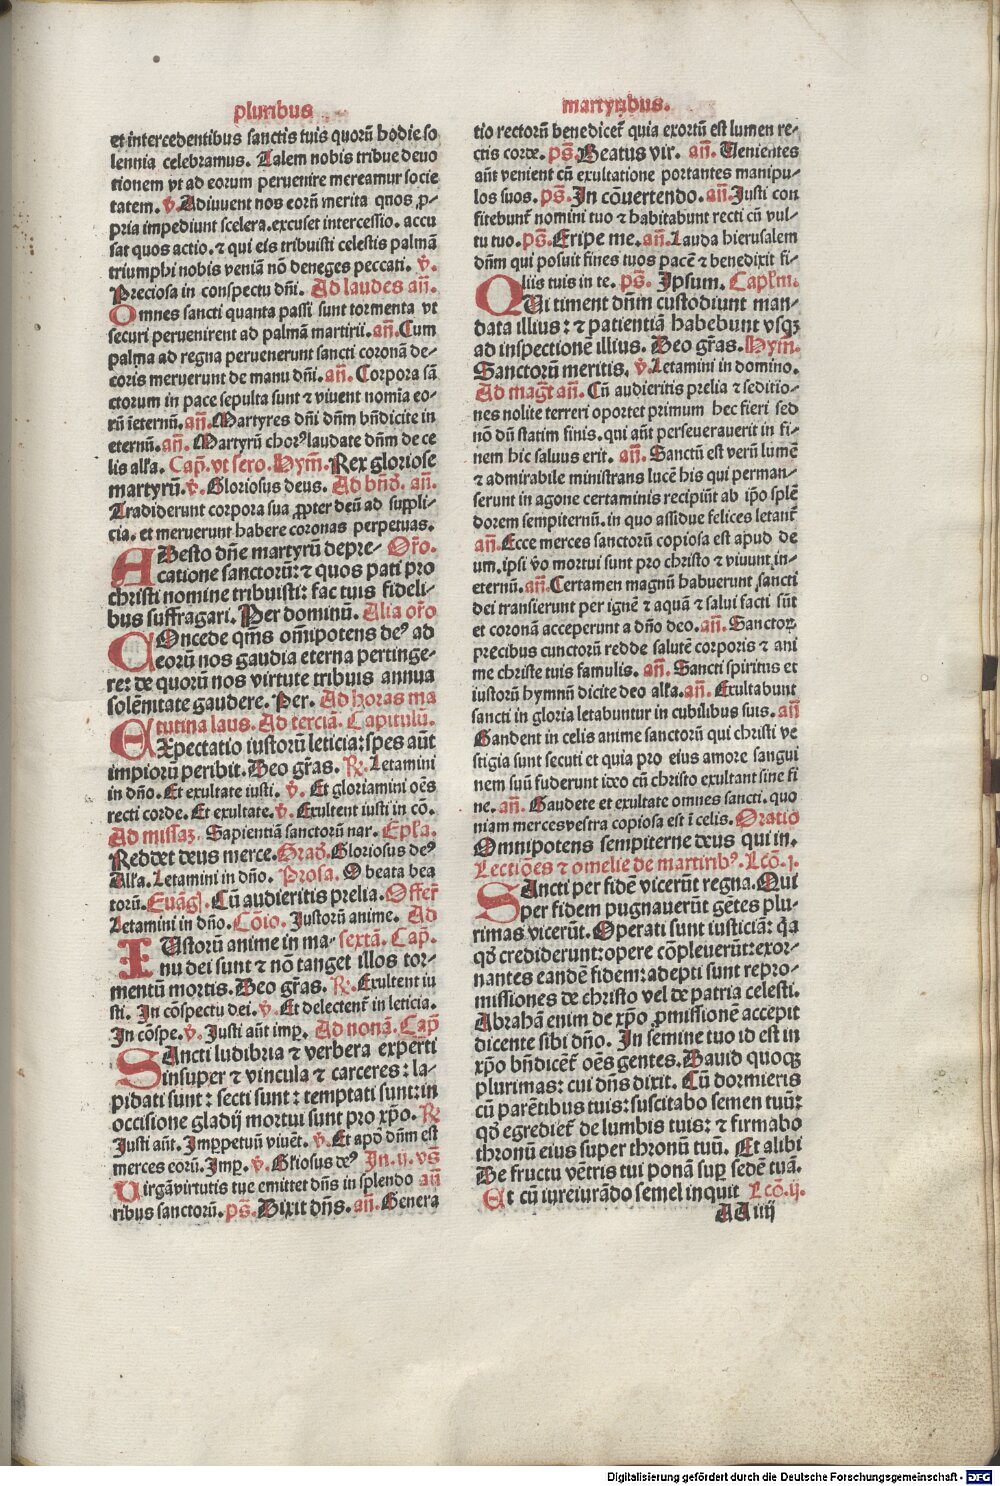 pluribus
et intercedentibus sanctis tuis quorū hodie so
lennia celebramus. Talem nobis tribue deuo
tionem vt ad eorum peruenire mereamur socie
tatem. v̄. Adiuuent nos eorū merita quos ꝓ-
pria impediunt scelera. excuset intercessio. accu
sat quos actio. ⁊ qui eis tribuisti celestis palmā
triumphi nobis veniā nō deneges peccati. v̄.
Preciosa in conspectu dn̄i. Ad laudes an̄.
Omnes sancti quanta passi sunt tormenta vt
securi peruenirent ad palmā martirii. an̄. Cum
palma ad regna peruenerunt sancti coronā de-
coris meruerunt de manu dn̄i. an̄. Corpora sā
ctorum in pace sepulta sunt ⁊ viuent nomīa eo-
rū īeternū. an̄. Martyres dn̄i dn̄m bn̄dicite in
eternū. an̄. Martyrū chorꝰ laudate dn̄m de ce
lis alła. Cap̄. vt sero. Hym̄. Rex gloriose
martyrū. v̄. Gloriosus deus. Ad bn̄d̄. an̄.
Tradiderunt corpora sua ꝓpter deū ad suppli-
cia. et meruerunt habere coronas perpetuas.
ADesto dn̄e martyrū depre- Or̄o.
catione sanctorū: ⁊ quos pati pro
christi nomine tribuisti: fac tuis fideli-
bus suffragari. Per dominū. Alia or̄o
COncede qm̄s om̄ipotens deꝰ ad
eorū nos gaudia eterna pertinge-
re: de quorū nos virtute tribuis annua
solēnitate gaudere. Per. Ad horas ma
tutina laus. Ad terciā. Capitulū.
EXpectatio iustorū leticia: spes aūt
impiorū peribit. Deo gr̄as. R̄. Letamini
in dn̄o. Et exultate iusti. v̄. Et gloriamini oēs
recti corde. Et exultate. v̄. Exultent iusti in cō.
Ad missaꝫ. Sapientiā sanctorū nar. Ep̄ła.
Reddet deus merce. Grad̄. Gloriosus deꝰ
Alła. Letamini in dn̄o. Prosa. O beata bea
torū. Euāgl̄. Cū audieritis prelia. Offer̄
Letamini in dn̄o. Cōio. Justorū anime. Ad
IUstorū anime in ma- sextā. Cap̄.
nu dei sunt ⁊ nō tanget illos tor-
mentū mortis. Deo gr̄as. R̄. Exultent iu
sti. In cōspectu dei. v̄. Et delectent̄ in leticia.
In cōspe. v̄. Justi aūt imꝑ. Ad nonā. Cap̄
SAncti ludibria ⁊ verbera experti
insuper ⁊ vincula ⁊ carceres: la-
pidati sunt: secti sunt: temptati sunt: in
occisione gladij mortui sunt pro xp̄o. R̄
Justi aūt. Imꝑpetuū viuēt. v̄. Et apd̄ dn̄m est
merces eorū. Imꝑ. v̄. Gl̄iosus deꝰ In. ij. vs̄
Uirgā virtutis tue emittet dn̄s in splendo an̄
ribus sanctorū. ps̄. Dixit dn̄s. an̄. Genera
martyribus.
tio rectorū benedicet̄ quia exortū est lumen re-
ctis corde. ps̄. Beatus vir. an̄. Uenientes
aūt venient cū exultatione portantes manipu-
los suos. ps̄. In cōuertendo. an̄. Justi con
fitebunt̄ nomini tuo ⁊ habitabunt recti cū vul-
tu tuo. ps̄. Eripe me. an̄. Lauda hierusalem
dn̄m qui posuit fines tuos pacē ⁊ benedixit fi-
liis tuis in te. ps̄. Ipsum. Capłm.
QUi timent dn̄m custodiunt man-
data illius: ⁊ patientiā habebunt vsqꝫ
ad inspectionē illius. Deo gr̄as. Hym̄.
Sanctorū meritis. v̄. Letamini in domino.
Ad maḡt an̄. Cū audieritis prelia ⁊ seditio-
nes nolite terreri oportet primum hec fieri sed
nō dū statim finis. qui aūt perseuerauerit in fi-
nem hic saluus erit. an̄. Sanctū est verū lumē
⁊ admirabile ministrans lucē his qui perman-
serunt in agone certaminis recipiūt ab ip̄o splē
dorem sempiternū. in quo assidue felices letant̄
an̄. Ecce merces sanctorū copiosa est apud de
um. ipsi v̄o mortui sunt pro christo ⁊ viuunt in-
eternū. an̄. Certamen magnū habuerunt sancti
dei transierunt per ignē ⁊ aquā ⁊ salui facti sūt
et coronā acceperunt a dn̄o deo. an̄. Sanctoꝝ
precibus cunctorū redde salutē corporis ⁊ ani
me christe tuis famulis. an̄. Sancti spiritus et
iustorū hymnū dicite deo alła. an̄. Exultabunt
sancti in gloria letabuntur in cubilibus suis. an̄
Gaudent in celis anime sanctorū qui christi ve
stigia sunt secuti et quia pro eius amore sangui
nem suū fuderunt ideo cū christo exultant sine fi
ne. an̄. Gaudete et exultate omnes sancti. quo
niam merces vestra copiosa est ī celis. Oratio
Omnipotens sempiterne deus qui in.
Lectiōes ⁊ omelie de martiribꝰ. Lcō. j.
SAncti per fidē vicerūt regna. Qui
per fidem pugnauerūt gētes plu-
rimas vicerūt. Operati sunt iusticiā: q̄a
qd̄ crediderunt: opere cōpleuerūt: exor-
nantes eandē fidem: adepti sunt repro-
missiones de christo vel de patria celesti.
Abrahā enim de xp̄o ꝓmissionē accepit
dicente sibi dn̄o. In semine tuo id est in
xp̄o bn̄dicēt̄ oēs gentes. Dauid quoqꝫ
plurimas: cui dn̄s dixit. Cū dormieris
cū parētibus tuis: suscitabo semen tuū:
qd̄ egrediet̄ de lumbis tuis: ⁊ firmabo
thronū eius super thronū tuū. Et alibi
De fructu vētris tui ponā suꝑ sedē tuā.
Et cū iureiurādo semel inquit Lcō. ij.
AA iiij
Digitalisierung gefördert durch die Deutsche Forschungsgemeinschaft - DFG